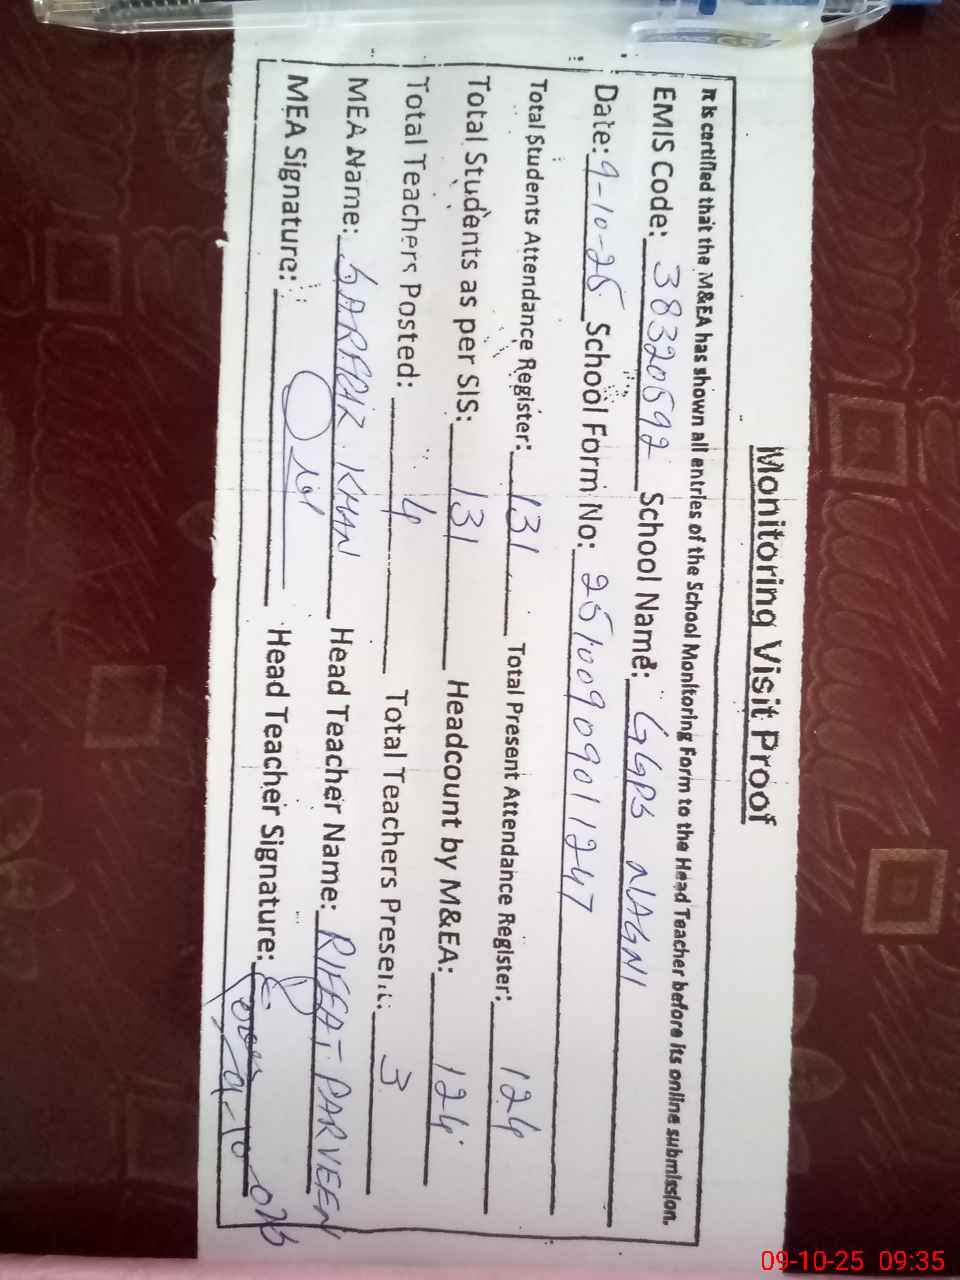 Monitoring Visit Proof
It is certified that the M&EA has shown all entries of the School Monitoring Form to the Head Teacher before its online submission.
EMIS Code: 38320592 School Name: GGPS NAGNI
Date: 9-10-25 School Form No: 2510090901247
Total Students Attendance Register: 131 Total Present Attendance Register: 124
Total Students as per SIS: 131 Headcount by M&EA: 124
Total Teachers Posted: 4 Total Teachers Present: 3
MEA Name: KHAN Head Teacher Name: RIFFAT PARVEEN
MEA Signature: Head Teacher Signature:
09-10-25 09:35